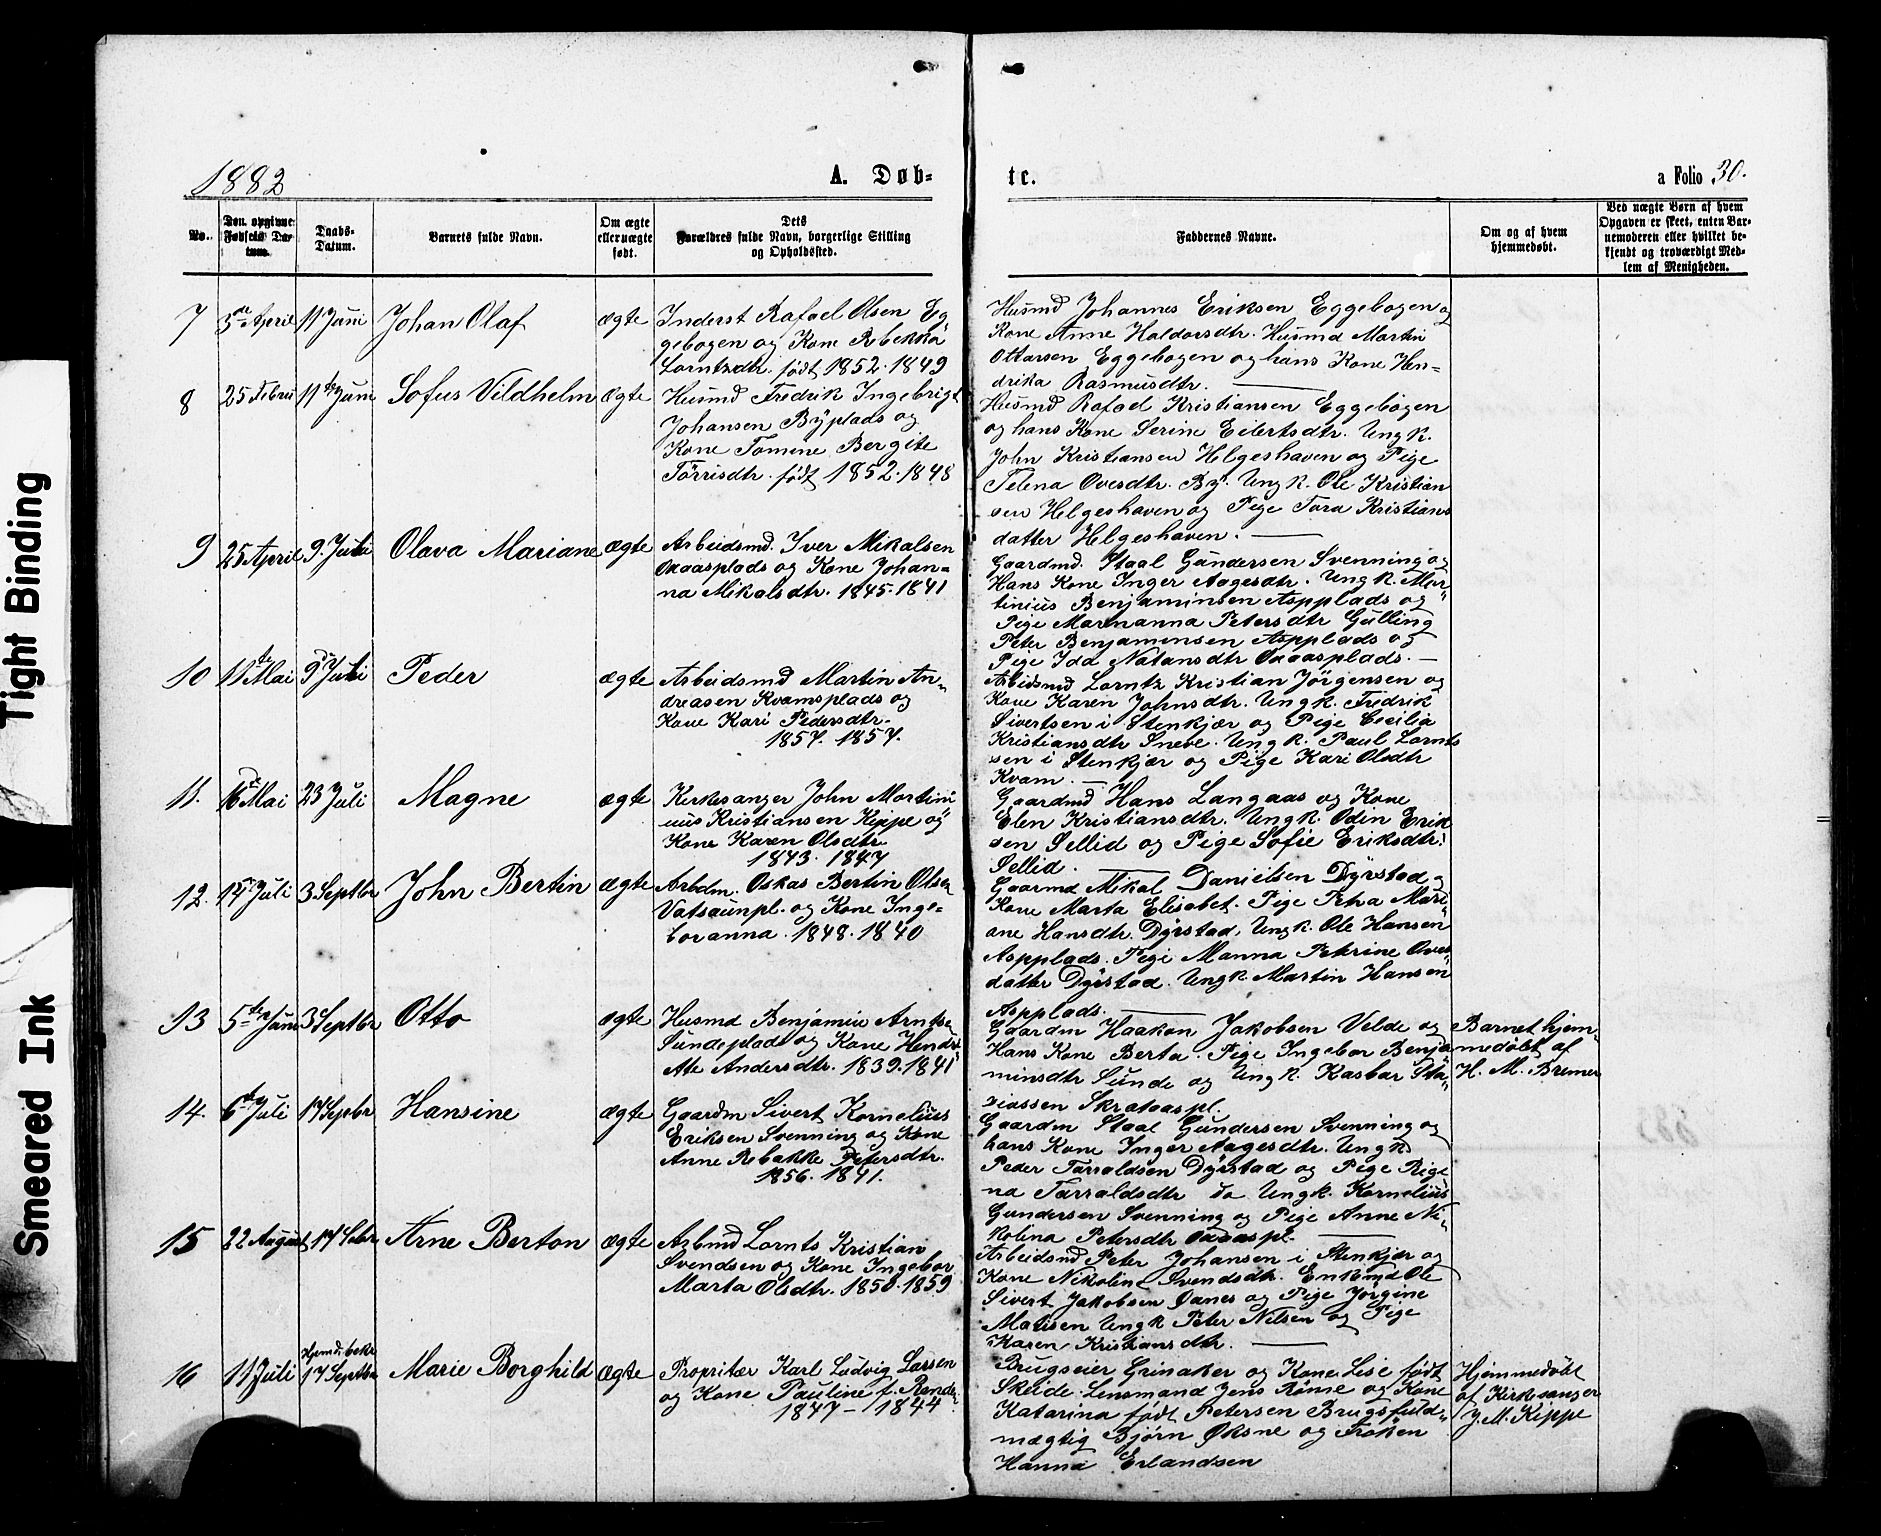 Tight Binding
Smeared Ink
1882
A. Døb-
te.
a Folio 30.
No.
Den opgivne Fødsels Datum.
Daabs-Datum.
Barnets fulde Navn.
Om ægte eller uægte født.
Dets Forældres fulde Navn, borgerlige Stilling og Opholdssted.
Faddernes Navne.
Om og af hvem hjemmedøbt.
Ved uægte Børn af hvem Opgaven er skeet, enten Barnemoderen eller hvilket bekjendt og troværdigt Medlem af Menigheden.
7 3die April 11 Juni Johan Olaf ægte
Inderst Rafael Olsen Eg-
gebogen og Kone Rebekka
Lorntzdtr. født 1852. 1849
Husmd Johannes Eriksen Eggebogen og
Kone Anne Haldorsdtr. Husmd Martin
Ottarsen Eggebogen og hans Kone Hen-
drika Rasmusdtr.
8 25 Febru 11te Juni Sofus Vildhelm ægte
Husmd Fredrik Ingebrigt
Johansen Byplads og
Kone Tomine Bergite
Törrisdtr. født 1852. 1848
Husmd Rafael Kristiansen Eggebogen
og hans Kone Serine Eilertsdtr. Ungk.
John Kristiansen Helgeshaven og Pige
Telena Ovesdtr. By. Ungk. Ole Kristian
sen Helgeshaven og Pige Tora Kristians
datter Helgeshaven.
9 25 April 9. Juli Olava Mariane ægte
Arbeidsmd. Iver Mikalsen
Oxaasplads og Kone Johan-
na Mikalsdtr. 1845. 1841
Gaardmd. Staal Gundersen Svenning og
Hans Kone Inger Aagesdtr. Ungk. Mar-
tinius Benjaminsen Aspplads og
Pige Marnanna Petersdtr Gulling
Peter Benjamensen Aspplads og
Pige Ida Natansdtr Oxaasplads.
10 11te Mai 9de Juli Peder ægte
Arbeidsmd Martin An-
dreasen Kvamsplads og
Kone Kari Pedersdtr.
1857. 1857.
Arbeidsmd Lorntz Kristian Jörgensen og
Kone Karen Johnsdtr. Ungk. Fredrik
Sivertsen i Stenkjær og Pige Cecilia
Kristiansdtr Sneve. Ungk. Paul Lornts
sen i Stenkjær og Pige Kari Olsdtr
Kvam.
11. 16de Mai 23 Juli Magne ægte
Kirkesanger John Martini
nus Kristiansen Kippe og
Kone Karen Olsdtr.
1843. 1847
Gaardmd Hans Langaas og Kone
Elen Kristiansdtr. Ungk. Odin Erik
sen Sellid og Pige Sofie Eriksdtr.
Sellid.
12. 14de Juli 3 Septbr John Bertin ægte
Arbdm. Oskas Bertin Olsen
Vatsaunpl. og Kone Inge-
boranna. 1848. 1840
Gaarmd Mikal Danielsen Dyrstad og
Kone Marta Elisabet. Pige Petra Mari-
ane Hansdtr. Dyrstad, Ungk. Ole Hansen
Aspplads. Pige Manna Petrine Oves-
datter Dyrstad. Ungk Martin Hansen
Aspplads.
13 5te Juni 3 Septbr Otto ægte
Husmd Benjamin Arntse
Sundeplads og Kone Hendr
Ate Andersdtr. 1839. 1841
Gaardm Haakon Jakobsen Velde og
Hans Kone Berta. Pige Ingebor Benja
minsdtr Sunde og Ungk. Kasbar
Skrataaspl.
Barnet hjem-
medøbt af
H. M. Bremer
14. 6te Juli 17 Sepbr Hansine ægte
Gaardm Sivert Kornelius
Eriksen Svenning og Kone
Anne Rebakke Petersdtr.
1856. 1841.
Gaardm Staal Gundersen Svenning og
hans Kone Inger Aagesdtr. Ungk
Peder Tarraldsen Dyrstad og Pige Regi
na Tarraldsdtr do Ungk. Kornelius
Gundersen Svenning og Pige Anne Ni-
kolina Petersdtr Oxaaspl.
15 22 August 17 Sebr Arne Berton ægte
Arbmd Lornts Kristian
Svendsen og Kone Ingebor
Marta Olsdtr. 1850. 1859
Arbeidsmd Peter Johansen i Stenkjær og
Kone Nikolina Svendsdtr. Enkmd Ole
Sivert Jakobsen Oanes og Pige Jörgine
Matisen Ungk Peter Nilsen og Pige
Karen Kristiansdtr.
16 11 Juli Hjemd. bekr 17 Septbr Marie Borghild ægte
Propritær Karl Ludvig Larsen
og Kone Pauline f.
1847 – 1844
Brugseier Grinaker og Kone Lise født
Skeide. Lensmand Jens Rönne og Kone
Katarina født Petersen Brugsfuld-
mægtig Bjørn Øksne og Frøken
Hanna Erlandsen
Hjemmedöbt
af Kirkesanger
J. M. Kippe